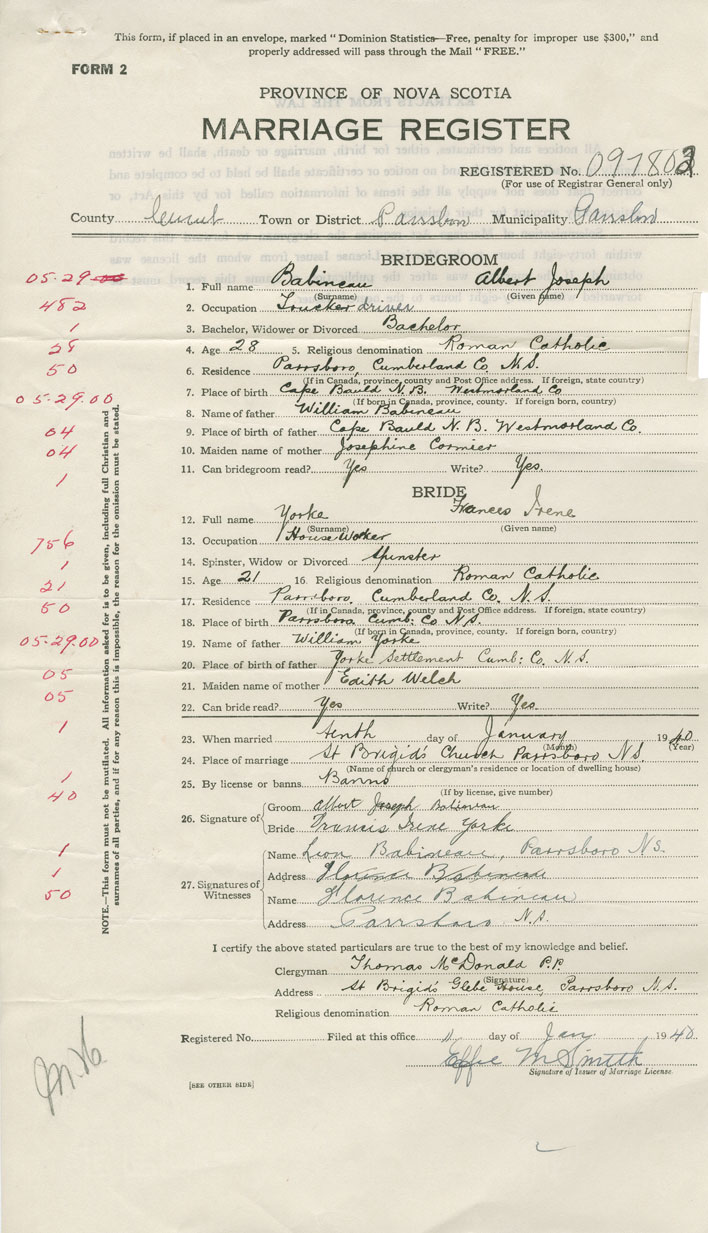 This form, if placed in an envelope, marked "Dominion Statistics—Free, penalty for improper use $300," and
properly addressed will pass through the Mail "FREE."
FORM 2
PROVINCE OF NOVA SCOTIA
MARRIAGE REGISTER
REGISTERED No. 097803
(For use of Registrar General only)
County Town or District Parrsboro Municipality Parrsboro
BRIDEGROOM
1. Full name Babineau Albert Joseph
(Surname) (Given name)
2. Occupation Trucker driver
3. Bachelor, Widower or Divorced Bachelor
4. Age 28 5. Religious denomination Roman Catholic
6. Residence Parrsboro, Cumberland Co. N.S.
(If in Canada, province, county and Post Office address. If foreign, state country)
7. Place of birth Cape Bauld N.B. Westmorland Co
(If born in Canada, province, county. If foreign born, country)
8. Name of father William Babineau
9. Place of birth of father Cape Bauld N.B. Westmorland Co.
10. Maiden name of mother Josephine Cormier
11. Can bridegroom read? Yes Write? Yes.
BRIDE
12. Full name Yorke Frances Irene
(Surname) (Given name)
13. Occupation House Worker
14. Spinster, Widow or Divorced Spinster
15. Age 21 16. Religious denomination Roman Catholic
17. Residence Parrsboro, Cumberland Co. N.S.
(If in Canada, province, county and Post Office address. If foreign, state country)
18. Place of birth Parrsboro Cumb: Co N.S.
(If born in Canada, province, county. If foreign born, country)
19. Name of father William Yorke
20. Place of birth of father Yorke Settlement Cumb: Co. N.S.
21. Maiden name of mother Edith Welch
22. Can bride read? Yes Write? Yes.
23. When married tenth day of January 1940
(Month) (Year)
24. Place of marriage St Brigid's Church Parrsboro N.S.
(Name of church or clergyman's residence or location of dwelling house)
25. By license or banns Banns
(If by license, give number)
26. Signature of
Groom Albert Joseph Babineau
Bride Francis Irene Yorke
27. Signatures of Witnesses
Name Leon Babineau, Parrsboro N.S.
Address Florence Babineau
Name Florence Babineau
Address Parrsboro N.S.
I certify the above stated particulars are true to the best of my knowledge and belief.
Clergyman Thomas McDonald P.P.
(Signature)
Address St Brigid's Glebe House, Parrsboro N.S.
Religious denomination Roman Catholic
Registered No. Filed at this office 11 day of Jan 1940
Effie M Smith
Signature of Issuer of Marriage License.
[SEE OTHER SIDE]
NOTE.—This form must not be mutilated. All information asked for is to be given, including full Christian and
surnames of all parties, and if for any reason this is impossible, the reason for the omission must be stated.
05-29
482
1
28
50
05-29.00
04
04
1
756
1
21
50
05-29.00
05
05
1
1
40
1
1
50